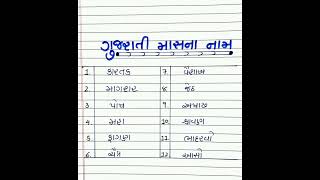 ગુજરાતી માસના નામ
1. કારતક 7. વૈશાખ
2. માગશર 8. જેઠ
3. પોષ 9. અષાઢ
4. મહા 10. શ્રાવણ
5. ફાગણ 11. ભાદરવો
6. ચૈત્ર 12. આસો